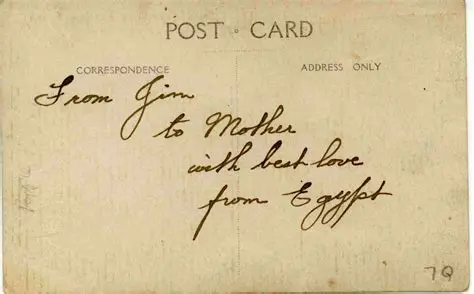 POST CARD
CORRESPONDENCE
ADDRESS ONLY
From Jim
to Mother
with best love
from Egypt
7Q